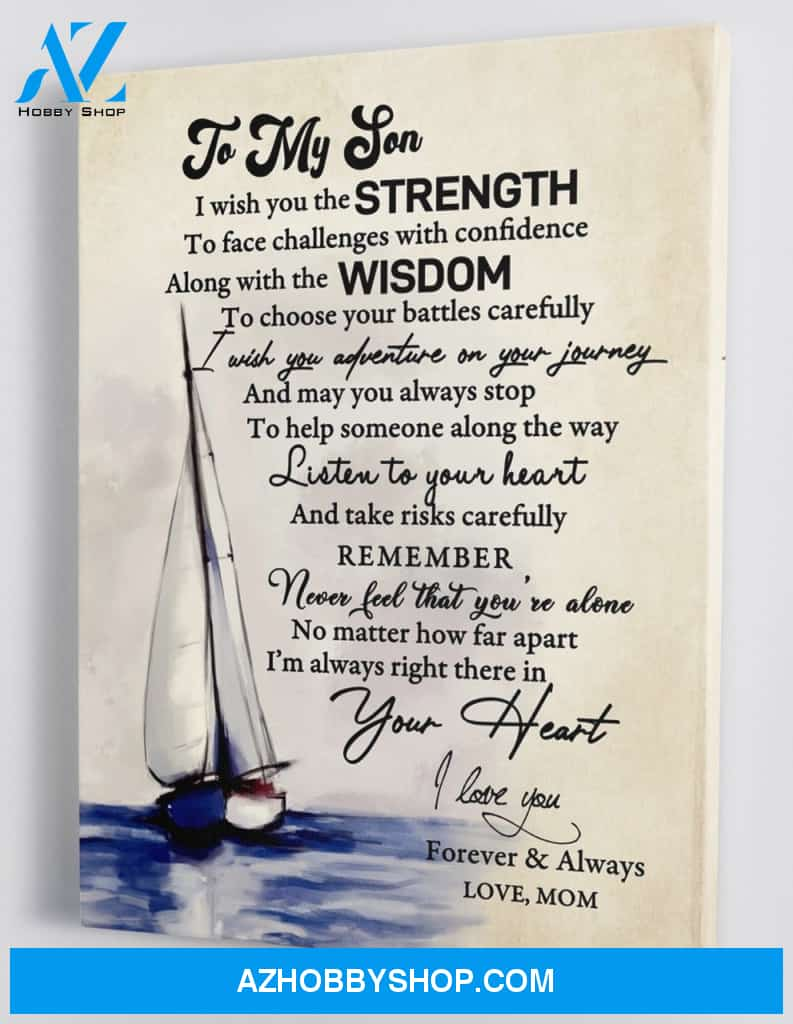 AZ
HOBBY SHOP
To My Son
I wish you the STRENGTH
To face challenges with confidence
Along with the WISDOM
To choose your battles carefully
I wish you adventure on your journey
And may you always stop
To help someone along the way
Listen to your heart
And take risks carefully
REMEMBER
Never feel that you're alone
No matter how far apart
I'm always right there in
Your Heart
I love you
Forever & Always
LOVE, MOM
AZHOBBYSHOP.COM